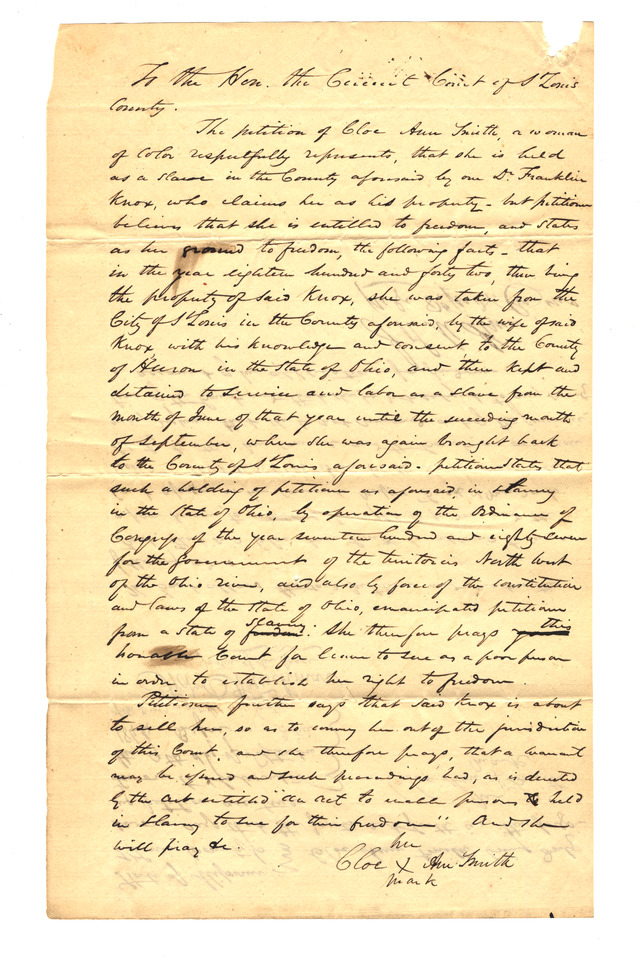 To the Hon. the Circuit Court of St Louis
County.
The petition of Cloe Ann Smith, a woman
of color respectfully represents, that she is held
as a slave in the County aforesaid by one Dr. Franklin
Knox, who claims her as his property - but petitioner
believes that she is entitled to freedom, and states
as her ground to freedom, the following facts - that
in the year eighteen hundred and forty two, then being
the property of said Knox, she was taken from the
City of St Louis in the County aforesaid, by the wife of said
Knox with his knowledge and consent to the County
of Huron in the State of Ohio, and then kept and
detained to service and labor as a slave from the
month of June of that year until the succeeding month
of September, when she was again brought back
to the County of St Louis aforesaid - petitioner states that
such a holding of petitioner as aforesaid, in slavery
in the State of Ohio, by operation of the Ordinance of
Congress of the year seventeen hundred and eighty seven
for the Government of the territories North West
of the Ohio river, and also by force of the constitution
and laws of the State of Ohio, emancipated petitioner
from a State of freedom slavery. She therefore prays this
honorable Court for leave to sue as a poor person
in order to establish her right to freedom.
Petitioner further says that said Knox is about
to sell her, so as to convey her out of the jurisdiction
of this Court, and she therefore prays, that a warrant
may be issued and such proceedings had, as is directed
by the act entitled "an act to enable persons held
in slavery to sue for their freedom" And she
will pray &c.
her
Cloe X Ann Smith
mark